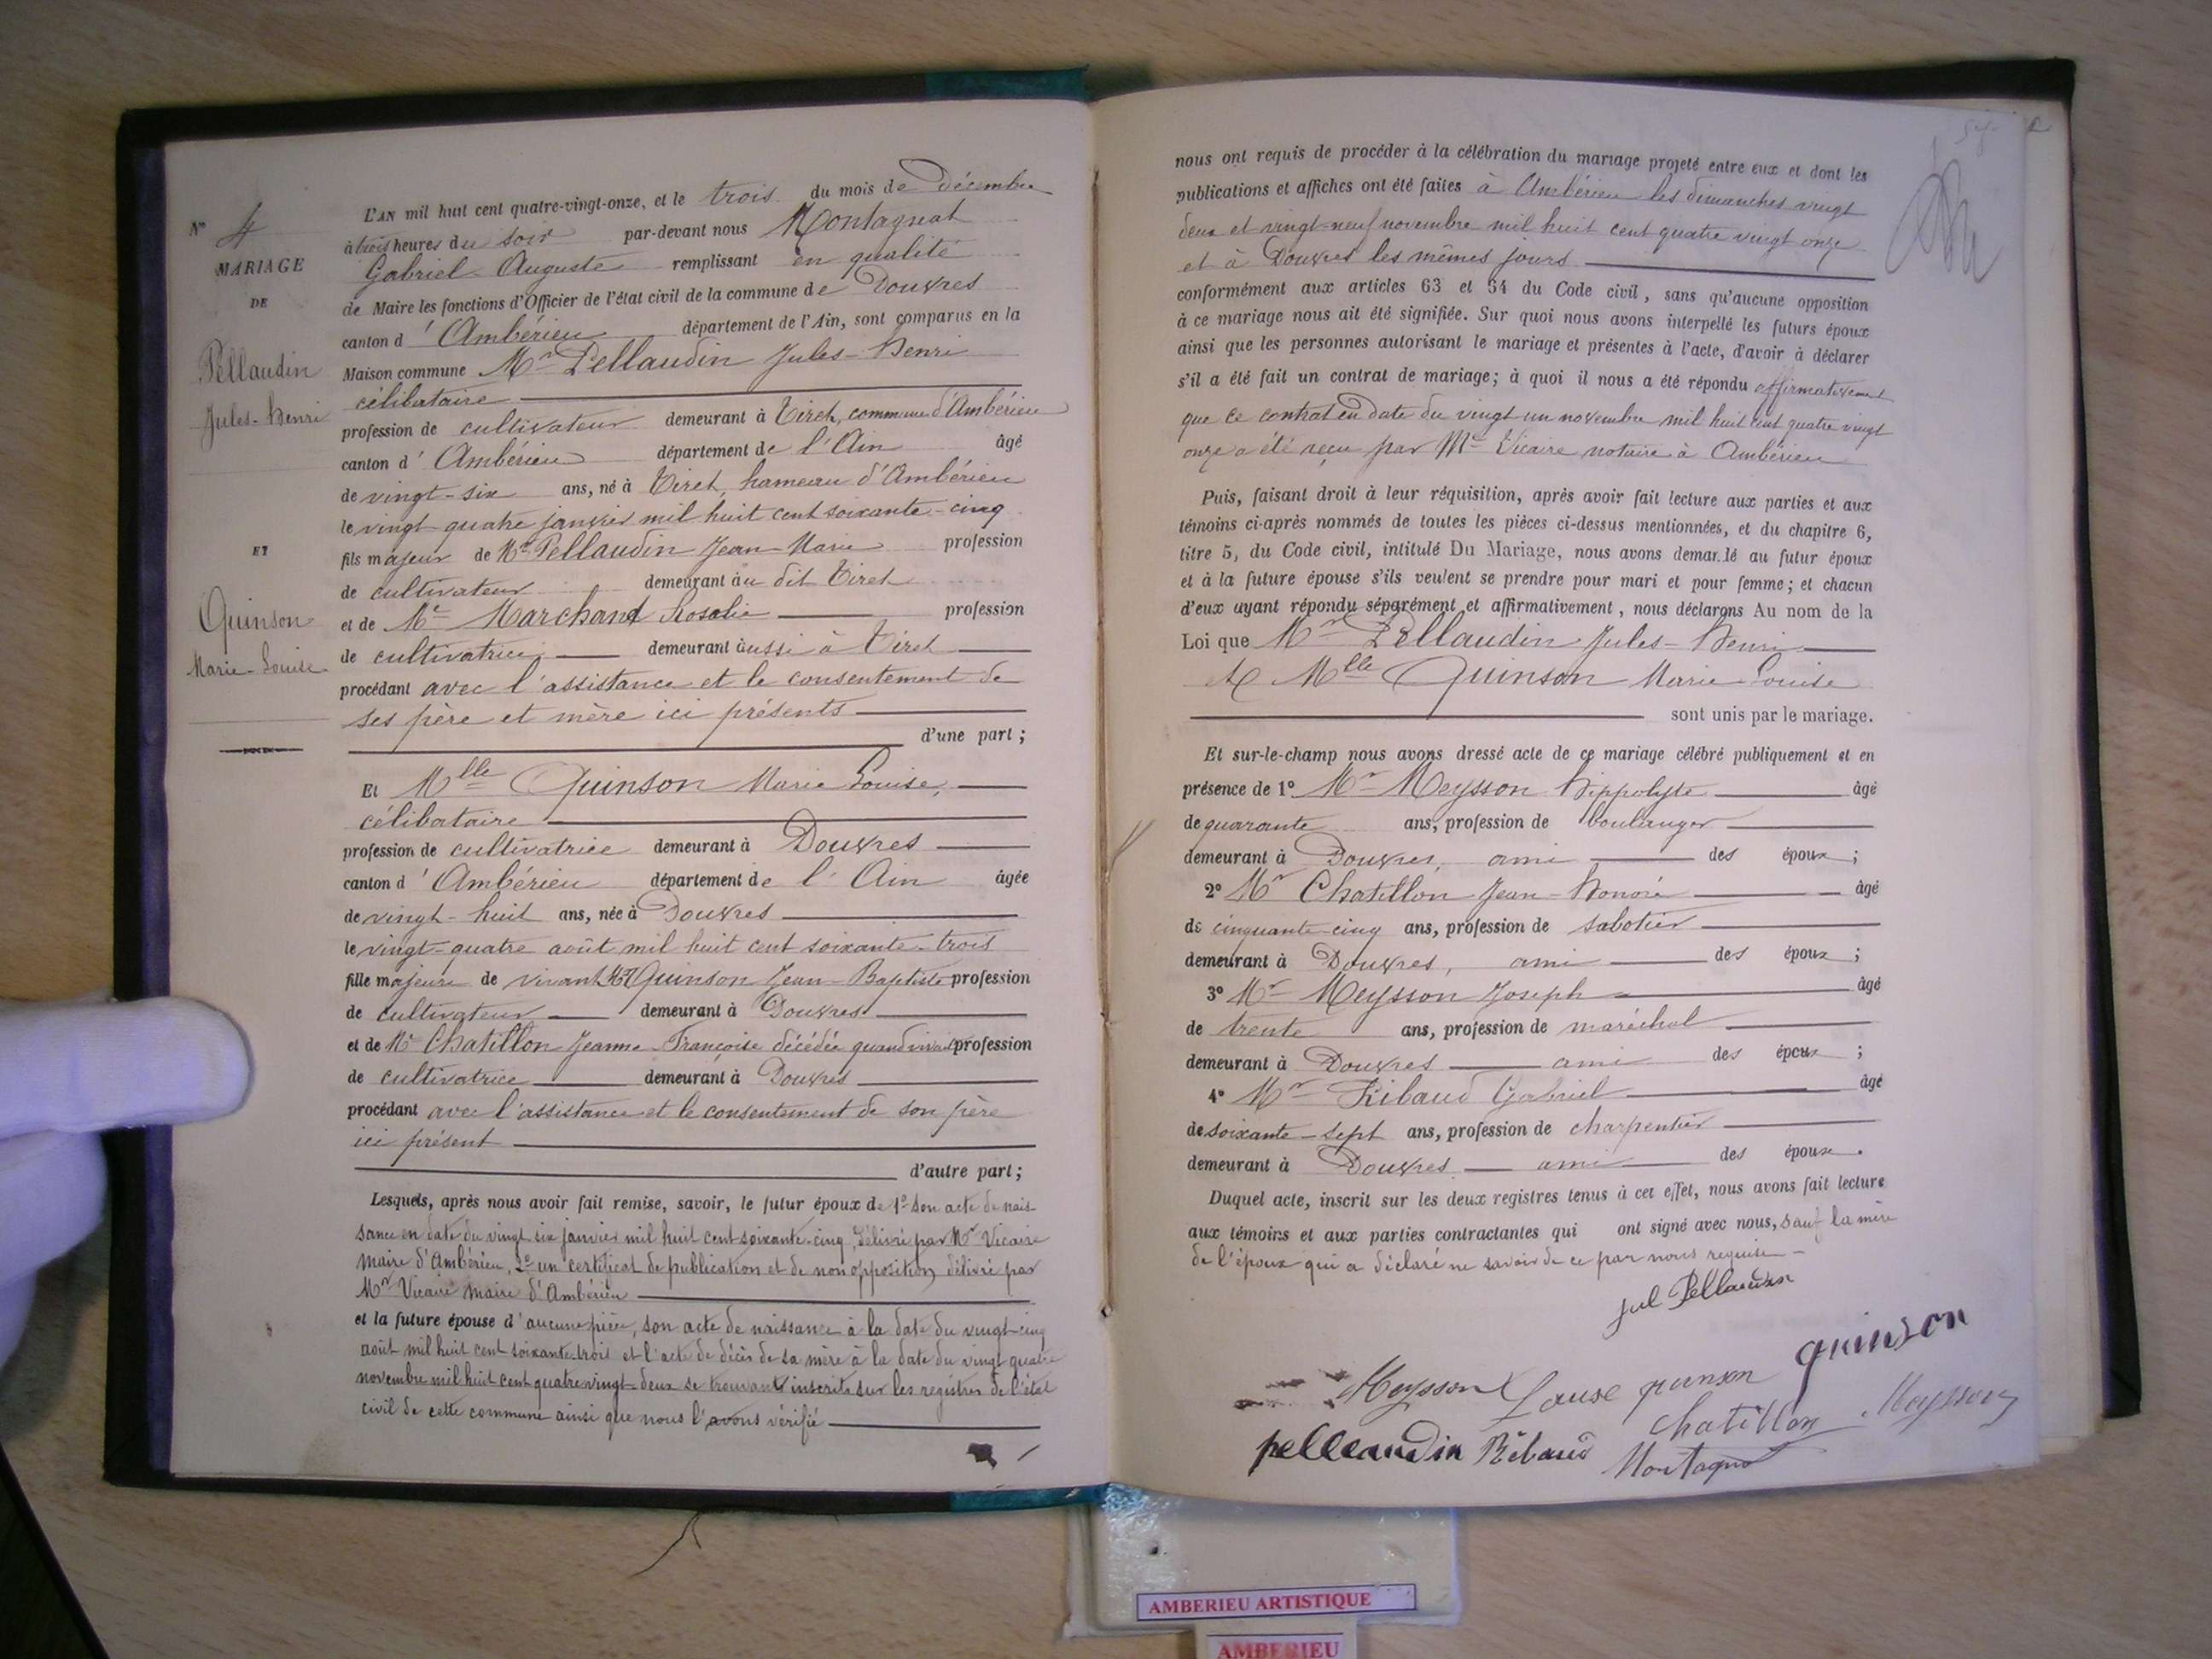 N° 4
MARIAGE
DE
Pellaudin
Jules-Henri
ET
Quinson
Marie-Louise
L'AN mil huit cent quatre-vingt-onze, et le trois du mois de Décembre
à trois heures du soir par-devant nous Montagnat
Gabriel-Auguste remplissant en qualité
de Maire les fonctions d'Officier de l'état civil de la commune de Douvres
canton d'Ambérieu département de l'Ain, sont comparus en la
Maison commune Mr Pellaudin Jules-Henri
célibataire
profession de cultivateur demeurant à Tiret, commune d'Ambérieu
canton d'Ambérieu département de l'Ain âgé
de vingt-six ans, né à Tiret, hameau d'Ambérieu
le vingt-quatre janvier mil huit cent soixante-cinq
fils majeur de Mr Pellaudin Jean-Marie profession
de cultivateur demeurant au dit Tiret
et de Me Marchand Rosalie profession
de cultivatrice demeurant aussi à Tiret
procédant avec l'assistance et le consentement de
ses père et mère ici présents
d'une part ;
Et Mlle Quinson Marie Louise,
célibataire
profession de cultivatrice demeurant à Douvres
canton d'Ambérieu département de l'Ain âgée
de vingt-huit ans, née à Douvres
le vingt-quatre août mil huit cent soixante-trois
fille majeure de vivant Mr Quinson Jean-Baptiste profession
de cultivateur demeurant à Douvres
et de Me Chatillon Jeanne-Françoise décédée quand vivait profession
de cultivatrice demeurant à Douvres
procédant avec l'assistance et le consentement de son père
ici présent
d'autre part ;
Lesquels, après nous avoir fait remise, savoir, le futur époux de 1° son acte de nais-
sance en date du vingt six janvier mil huit cent soixante-cinq, délivré par Mr Vicaire
maire d'Ambérieu, 2° un certificat de publication et de non opposition délivré par
Mr Vicaire maire d'Ambérieu
et la future épouse d'aucune pièce, son acte de naissance à la date du vingt-cinq
août mil huit cent soixante-trois et l'acte de décès de sa mère à la date du vingt quatre
novembre mil huit cent quatre vingt-deux se trouvant inscrits sur les registres de l'état
civil de cette commune ainsi que nous l'avons vérifié
nous ont requis de procéder à la célébration du mariage projeté entre eux et dont les
publications et affiches ont été faites à Ambérieu les dimanches vingt
deux et vingt-neuf novembre mil huit cent quatre vingt onze
et à Douvres les mêmes jours
conformément aux articles 63 et 64 du Code civil, sans qu'aucune opposition
à ce mariage nous ait été signifiée. Sur quoi nous avons interpellé les futurs époux
ainsi que les personnes autorisant le mariage et présentes à l'acte, d'avoir à déclarer
s'il a été fait un contrat de mariage ; à quoi il nous a été répondu affirmativement
que ce contrat en date du vingt un novembre mil huit cent quatre vingt
onze a été reçu par Me Vicaire notaire à Ambérieu
Puis, faisant droit à leur réquisition, après avoir fait lecture aux parties et aux
témoins ci-après nommés de toutes les pièces ci-dessus mentionnées, et du chapitre 6,
titre 5, du Code civil, intitulé Du Mariage, nous avons demandé au futur époux
et à la future épouse s'ils veulent se prendre pour mari et pour femme ; et chacun
d'eux ayant répondu séparément et affirmativement, nous déclarons Au nom de la
Loi que Mr Pellaudin Jules-Henri
et Mlle Quinson Marie Louise
sont unis par le mariage.
Et sur-le-champ nous avons dressé acte de ce mariage célébré publiquement et en
présence de 1° Mr Meysson Hippolyte âgé
de quarante ans, profession de boulanger
demeurant à Douvres, ami des époux ;
2° Mr Chatillon Jean-Honoré âgé
de cinquante-cinq ans, profession de sabotier
demeurant à Douvres, ami des époux ;
3° Mr Meysson Joseph âgé
de trente ans, profession de maréchal
demeurant à Douvres ami des époux ;
4° Mr Ribaud Gabriel âgé
de soixante-sept ans, profession de charpentier
demeurant à Douvres ami des époux.
Duquel acte, inscrit sur les deux registres tenus à cet effet, nous avons fait lecture
aux témoins et aux parties contractantes qui ont signé avec nous, sauf la mère
de l'époux qui a déclaré ne savoir de ce par nous requise
jul Pellaudin
Meysson Louise quinson quinson
chatillon Meysson
pelleaudin Ribaud Montagnat
AMBERIEU ARTISTIQUE
AMBERIEU